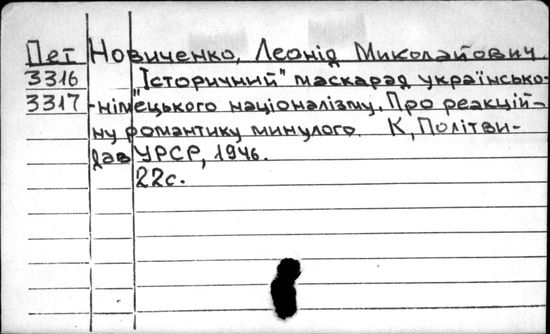 Пет Новиченко, Леонід Миколайович
3316 "Історичний" маскарад українсько-
3317 -німецького націоналізму. Про реакцій-
ну романтику минулого. К, Політви-
дав УРСР, 1946.
22с.